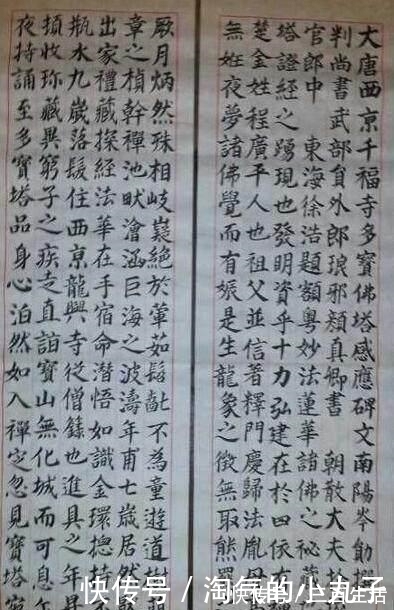 大唐西京千福寺多寶佛塔感應碑文南陽岑勛撰
判尚書武部員外郎琅邪顏真卿書 朝散大夫
官郎中 東海徐浩題額粵妙法蓮華諸佛之秘藏
塔證經之踴現也發明資乎十力弘建在於四依有
楚金姓程廣平人也祖父並信著釋門慶歸法胤母
無姙夜夢諸佛覺而有娠是生龍象之徵無取熊羆
厥月炳然殊相岐嶷絕於葷茹髫齔不為童遊道樹
章之楨幹禪池畎澮涵巨海之波濤年甫七歲居然
出家禮藏探經法華在手宿命潛悟如識金環揔持
瓶水九歲落髮住西京龍興寺從僧籙也進具之年
頂收珎藏異窮子之疾走直詣寶山無化城而可息
夜持誦至多寶塔品身心泊然如入禪定忽見寶塔
快传号 / 淘气的小丸子